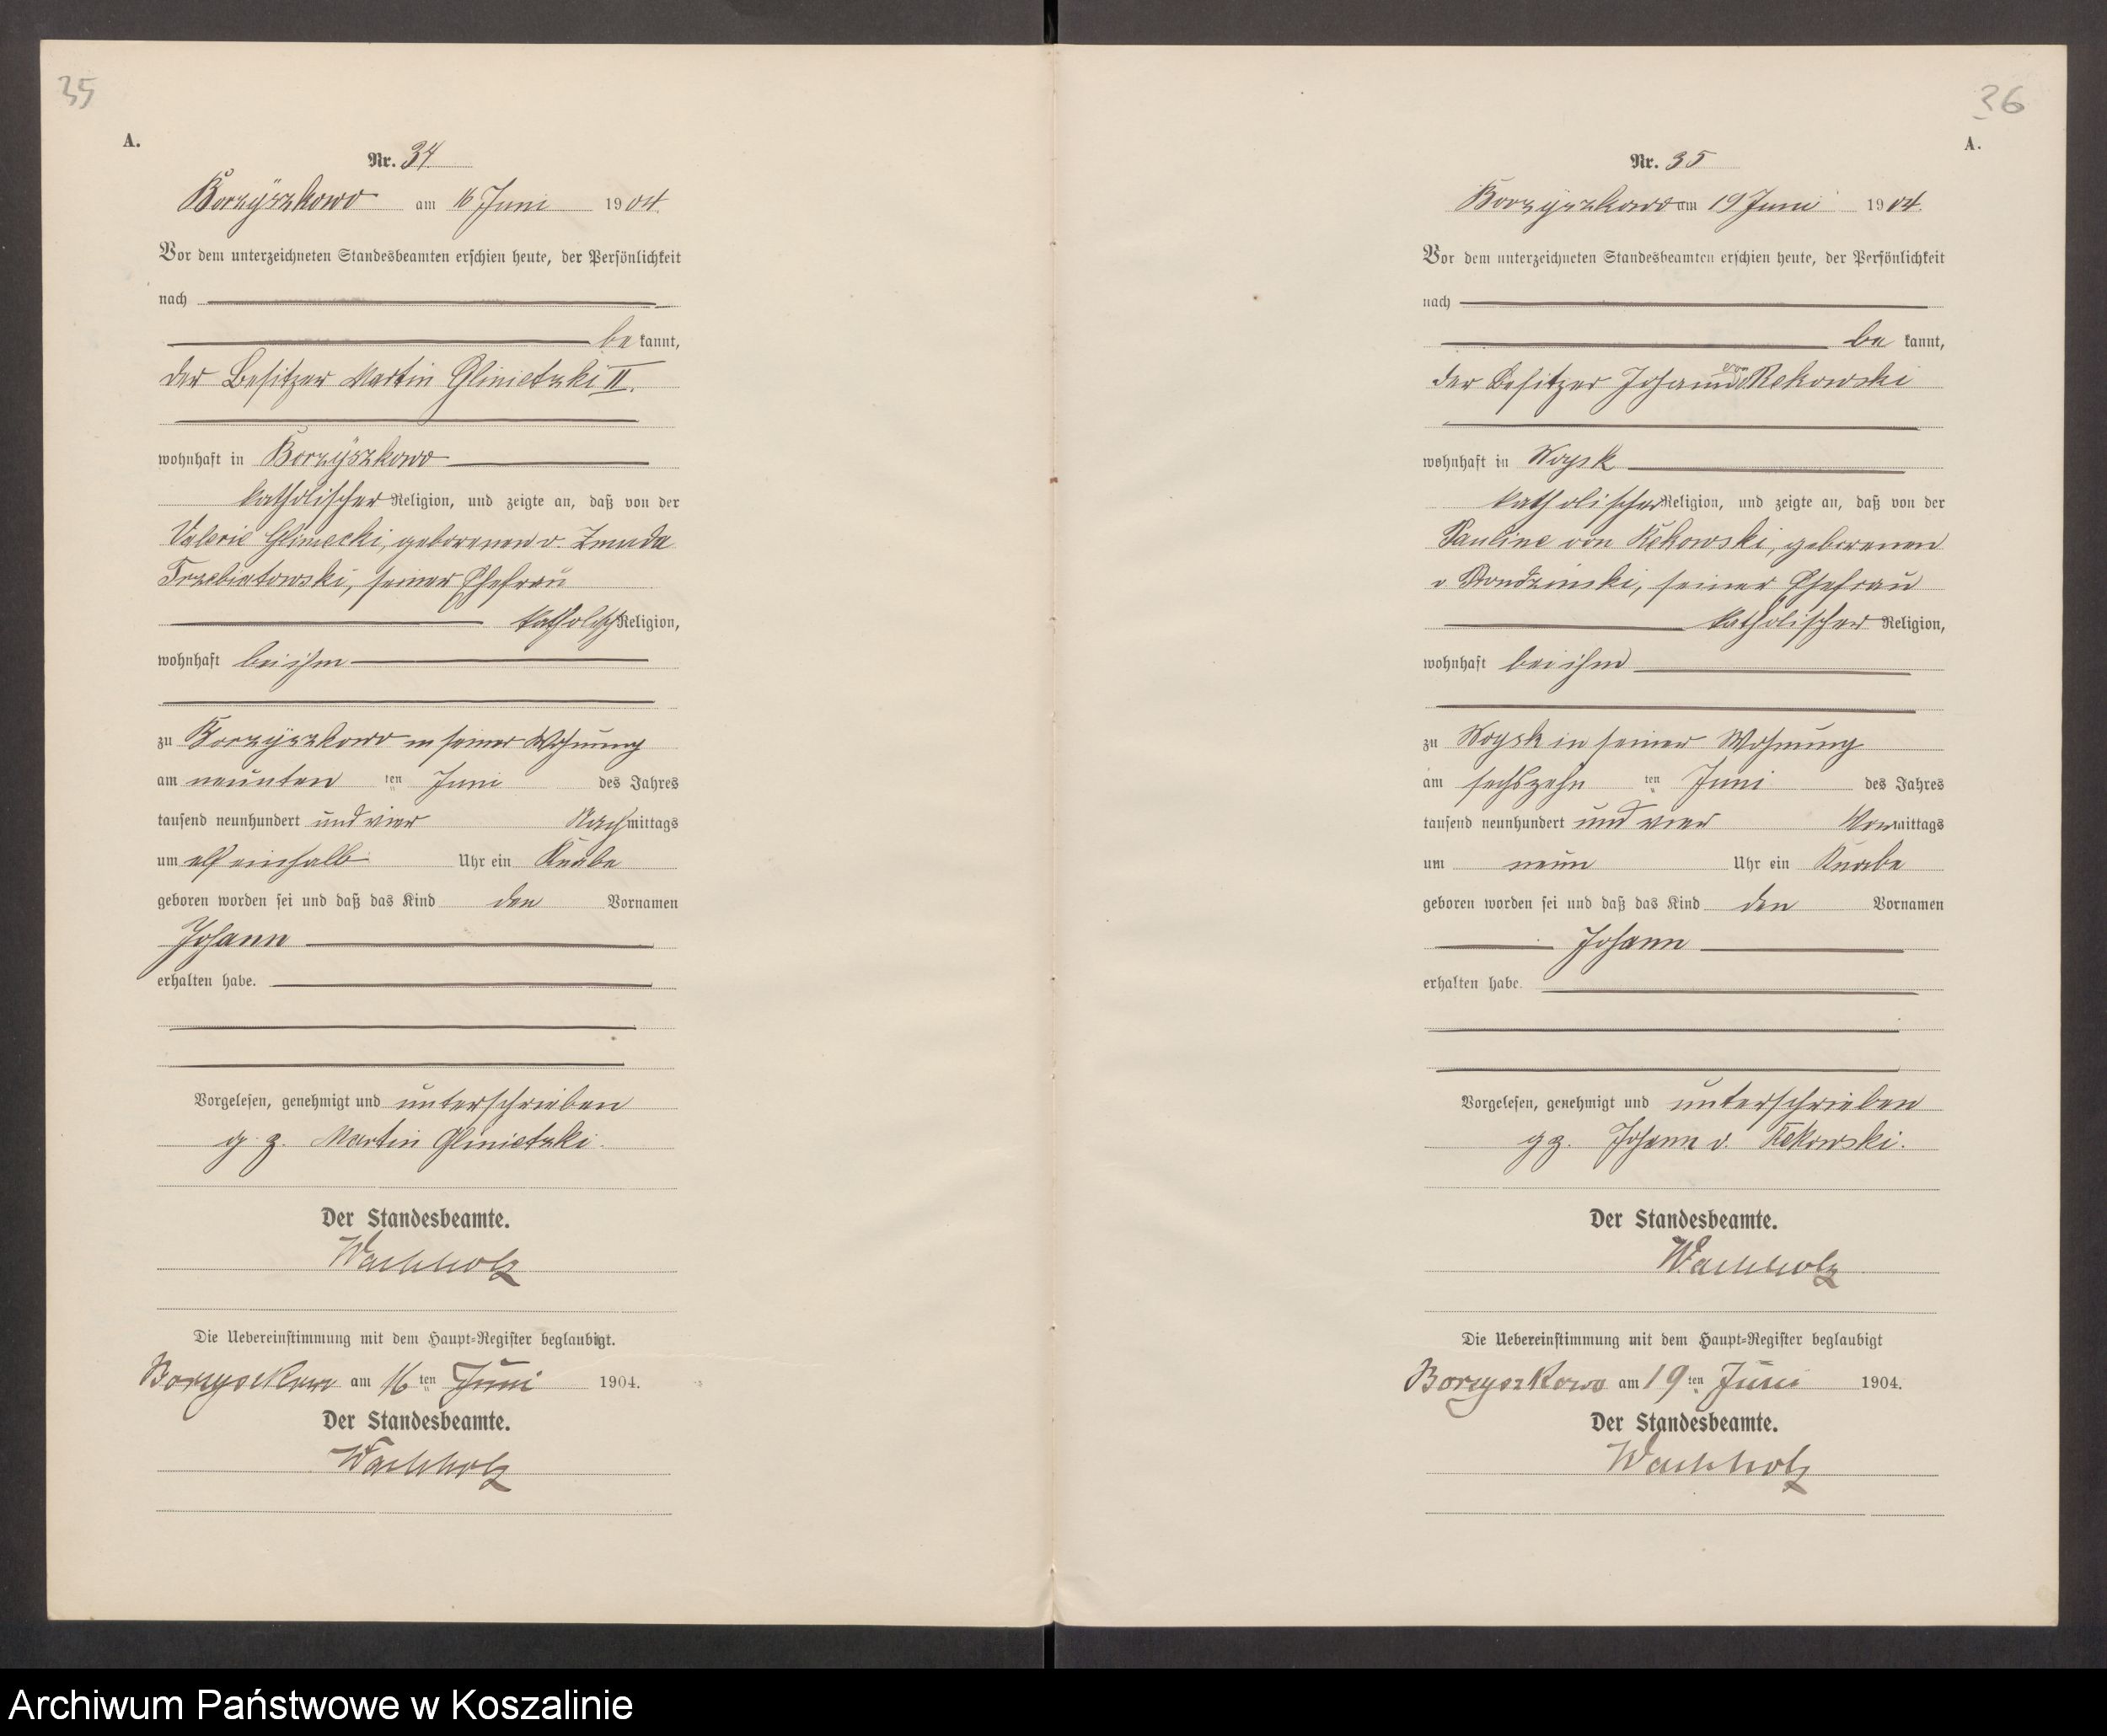 35
A.
Nr. 34
Borzÿszkowo am 16 Juni 1904.
Vor dem unterzeichneten Standesbeamten erschien heute, der Persönlichkeit
nach
be kannt,
der Besitzer Martin Glinietzki II.
wohnhaft in Borzÿszkowo
katholischer Religion, und zeigte an, daß von der
Valerie Gliniecki, geborenen v. Zmuda
Trzebiatowski, seiner Ehefrau
katholisch Religion,
wohnhaft bei ihm
zu Borzÿszkowo in seiner Wohnung
am neunten ten Juni des Jahres
tausend neunhundert und vier Nachmittags
um elf einhalb Uhr ein Knabe
geboren worden sei und daß das Kind den Vornamen
Johann
erhalten habe.
Vorgelesen, genehmigt und unterschrieben
g. g. Martin Glinietzki.
Der Standesbeamte.
Wachholz
Die Uebereinstimmung mit dem Haupt-Register beglaubigt.
Borzyszkowo am 16 ten Juni 1904.
Der Standesbeamte.
Wachholz
36
A.
Nr. 35
Borzyszkowo am 19 Juni 1904.
Vor dem unterzeichneten Standesbeamten erschien heute, der Persönlichkeit
nach
be kannt,
der Besitzer Johann von Rekowski
wohnhaft in
katholischer Religion, und zeigte an, daß von der
Pauline von Rekowski, geborenen
v. seiner Ehefrau
katholischer Religion,
wohnhaft bei ihm
zu in seiner Wohnung
am sechszehn ten Juni des Jahres
tausend neunhundert und vier Vormittags
um neun Uhr ein Knabe
geboren worden sei und daß das Kind den Vornamen
Johann
erhalten habe.
Vorgelesen, genehmigt und unterschrieben
g g. Johann v. Rekowski.
Der Standesbeamte.
Wachholz
Die Uebereinstimmung mit dem Haupt-Register beglaubigt
Borzyszkowo am 19 ten Juni 1904.
Der Standesbeamte.
Wachholz
Archiwum Państwowe w Koszalinie